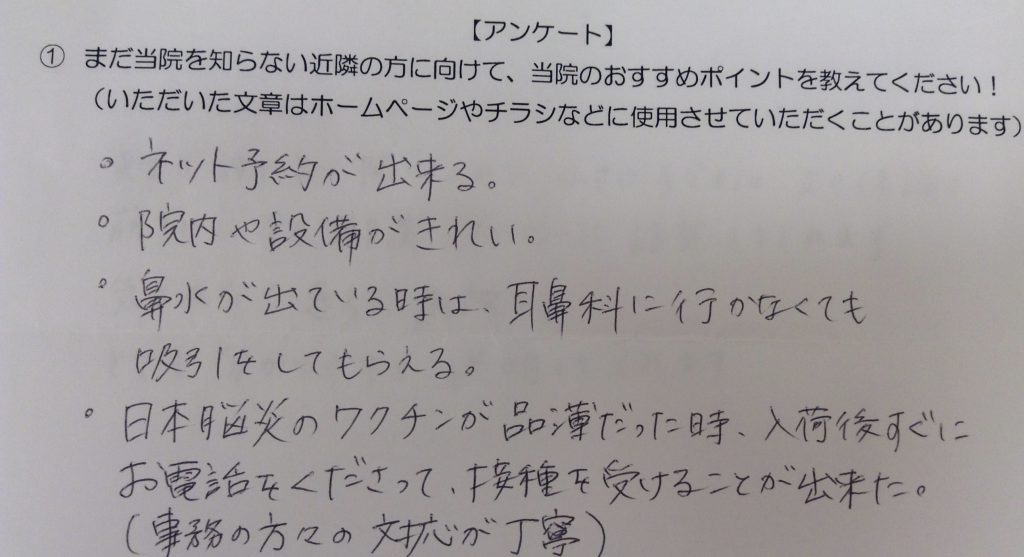 【アンケート】
① まだ当院を知らない近隣の方に向けて、当院のおすすめポイントを教えてください！
（いただいた文章はホームページやチラシなどに使用させていただくことがあります）
。ネット予約が出来る。
。院内や設備がきれい。
。鼻水が出ている時は、耳鼻科に行かなくても
吸引をしてもらえる。
。日本脳炎のワクチンが品薄だった時、入荷後すぐに
お電話をくださって、接種を受けることが出来た。
（事務の方々の対応が丁寧）